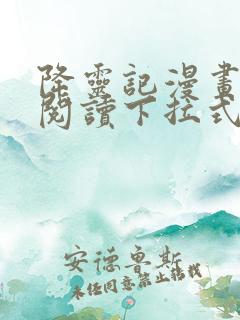 降靈記漫畫
閱讀下拉式
安德魯斯
未经同意禁止转载